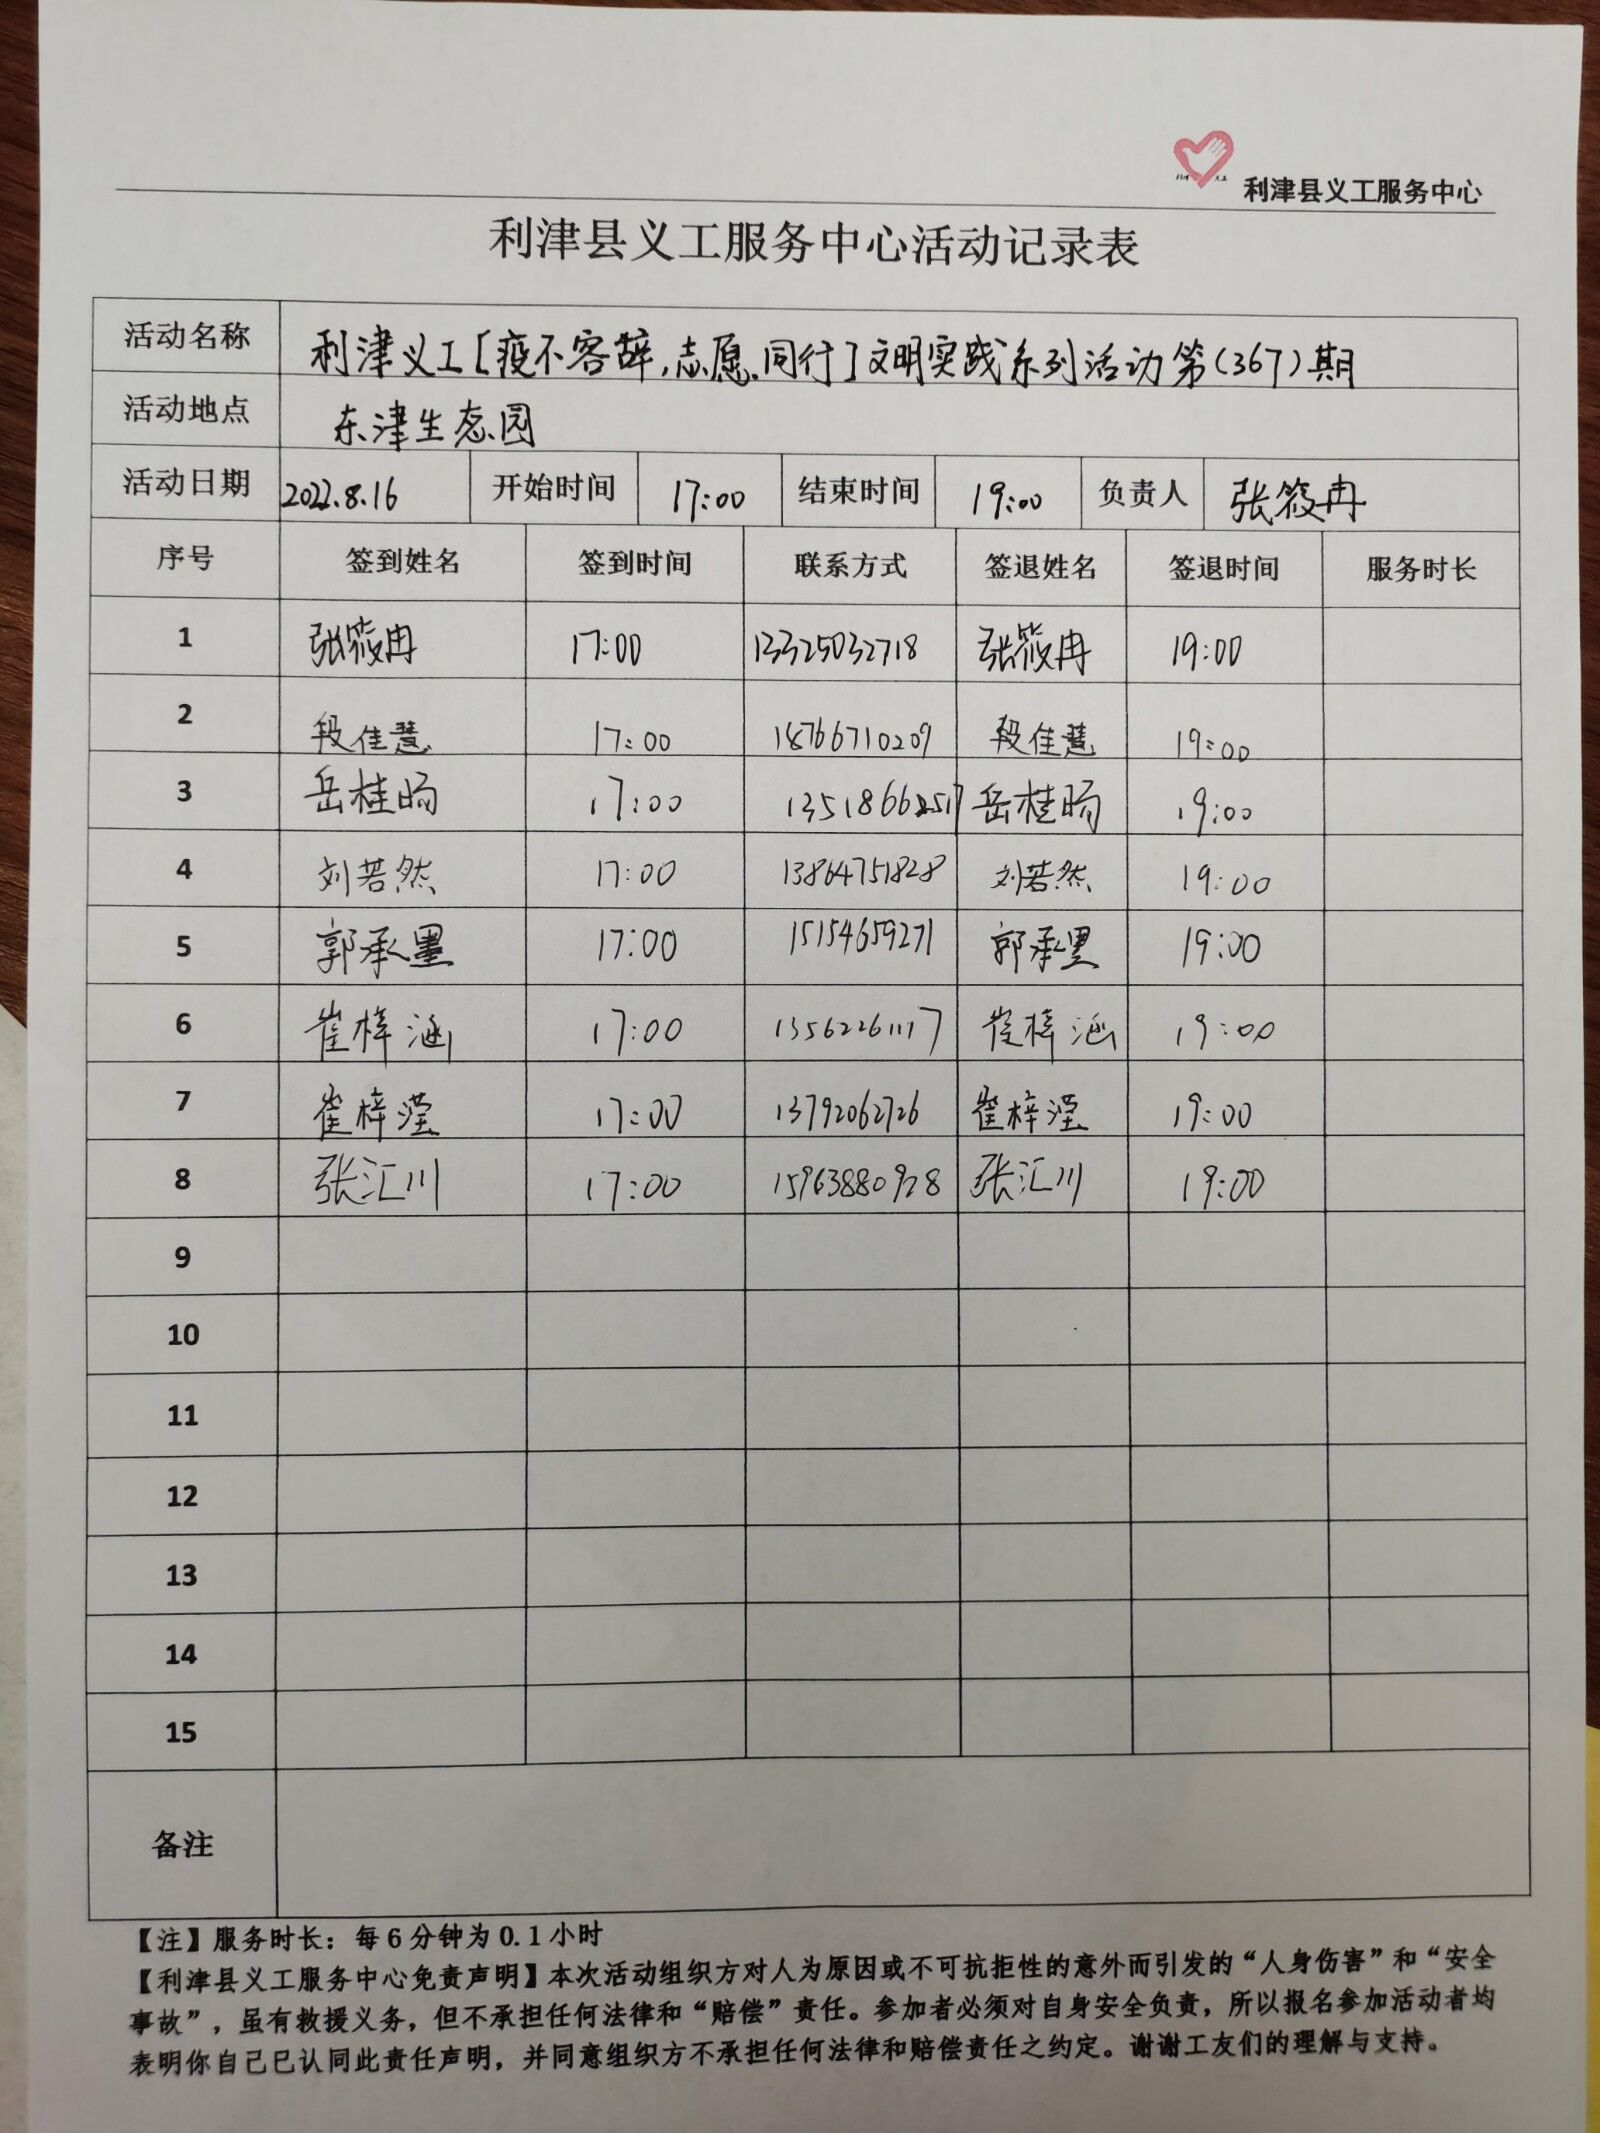 利津县义工服务中心
利津县义工服务中心活动记录表
活动名称 利津义工[疫不容辞,志愿同行]文明实践系列活动第(367)期
活动地点 东津生态园
活动日期 2022.8.16 开始时间 17:00 结束时间 19:00 负责人 张筱冉
序号 签到姓名 签到时间 联系方式 签退姓名 签退时间 服务时长
1 张筱冉 17:00 13325032718 张筱冉 19:00
2 段佳慧 17:00 18766710209 段佳慧 19:00
3 岳桂旸 17:00 岳桂旸 19:00
4 刘若然 17:00 13864751828 刘若然 19:00
5 郭承墨 17:00 15154659271 郭承墨 19:00
6 崔梓涵 17:00 13562261117 崔梓涵 19:00
7 崔梓滢 17:00 13792062726 崔梓滢 19:00
8 张汇川 17:00 15963880928 张汇川 19:00
9
10
11
12
13
14
15
备注
【注】服务时长：每6分钟为0.1小时
【利津县义工服务中心免责声明】本次活动组织方对人为原因或不可抗拒性的意外而引发的“人身伤害”和“安全
事故”，虽有救援义务，但不承担任何法律和“赔偿”责任。参加者必须对自身安全负责，所以报名参加活动者均
表明你自己已认同此责任声明，并同意组织方不承担任何法律和赔偿责任之约定。谢谢工友们的理解与支持。